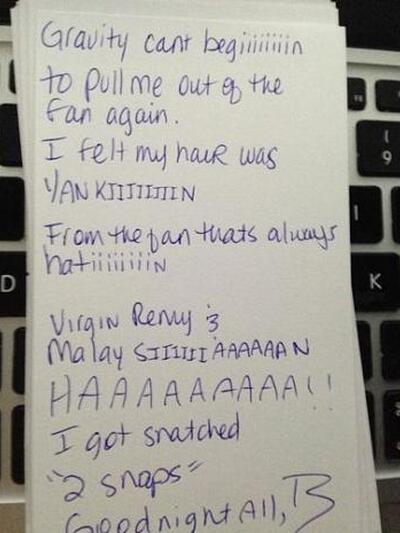 Gravity cant begiiiiiiiin
to pull me out of the
fan again.
I felt my hair was
YANKIIIIIIIIN
From the fan thats always
hatiiiiiiiiiN
Virgin Remy &
Malay SIIIIIIAAAAAAN
HAAAAAAAAA!!
I got snatched
"2 snaps"
Goodnight All, B
9
I
D
K